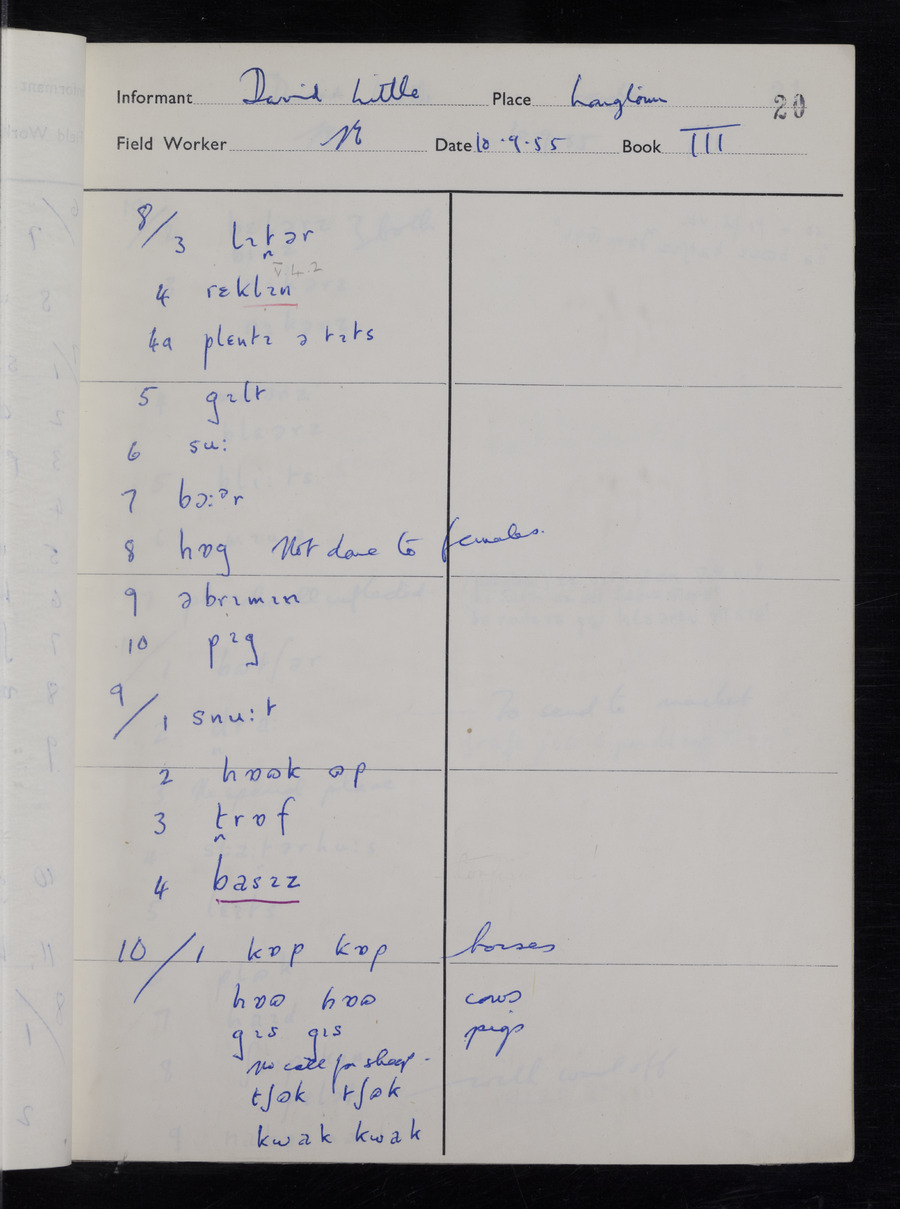 Informant David Little Place Longtown 20
Field Worker Date 10.9.55 Book III
8/3 lɪtər
V.4.2
4 rɛklɪn
4a plɛntɪ ə tɪts
5 gɪlt
6 su:
7 bɔ:ər
8 hɒg Not done to females.
9 əbrɪmɪn
10 pɪg
9/1 snu:t
2 hɒʊk ʊp
3 trɒf
4 basɪz
10/1 kɒp kɒp horses
hɒʊ hɒʊ cows
gɪs gɪs pigs
No call for sheep -
tʃʊk tʃʊk
kwak kwak